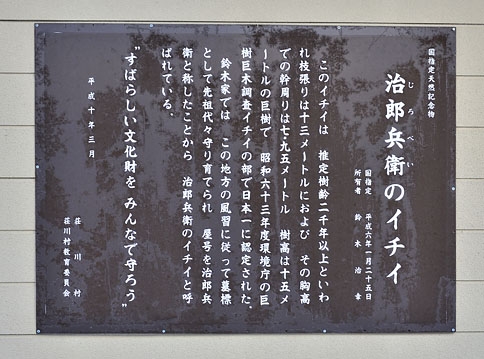 国指定天然記念物
じろべい
治郎兵衛のイチイ
国指定 平成六年一月二十五日
所有者 鈴木治幸
このイチイは 推定樹齢二千年以上といわ
れ枝張りは十三メートルにおよび その胸高
での幹周りは七・九五メートル 樹高は十五メ
ートルの巨樹で 昭和六十三年度環境庁の巨
樹巨木調査イチイの部で日本一に認定された。
鈴木家では この地方の風習に従って墓標
として先祖代々守り育てられ 屋号を治郎兵
衛と称したことから 治郎兵衛のイチイと呼
ばれている。
"すばらしい文化財を みんなで守ろう"
平成十年三月
荘川村
荘川村教育委員会